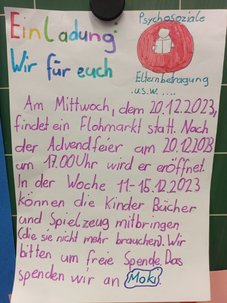 Einladung
Psychosoziale
Wir für euch
Elternbetragung
u.s.w. ....
Am Mittwoch, dem 20.12.2023,
findet ein Flohmarkt statt. Nach
der Advendfeier am 20.12.2023
um 17.00 Uhr wird er eröffnet.
In der Woche 11-15.12.2023
können die Kinder Bücher
und Spielzeug mitbringen
(die sie nicht mehr brauchen). Wir
bitten um freie Spende. Das
spenden wir an Moki.